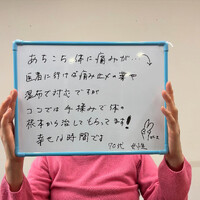 あちこち体に痛みが
医者に行けば痛み止めの薬や
湿布で対応ですが
ココでは手揉みで体の
根本から治してもらってます!
幸せな時間です
70代 女性